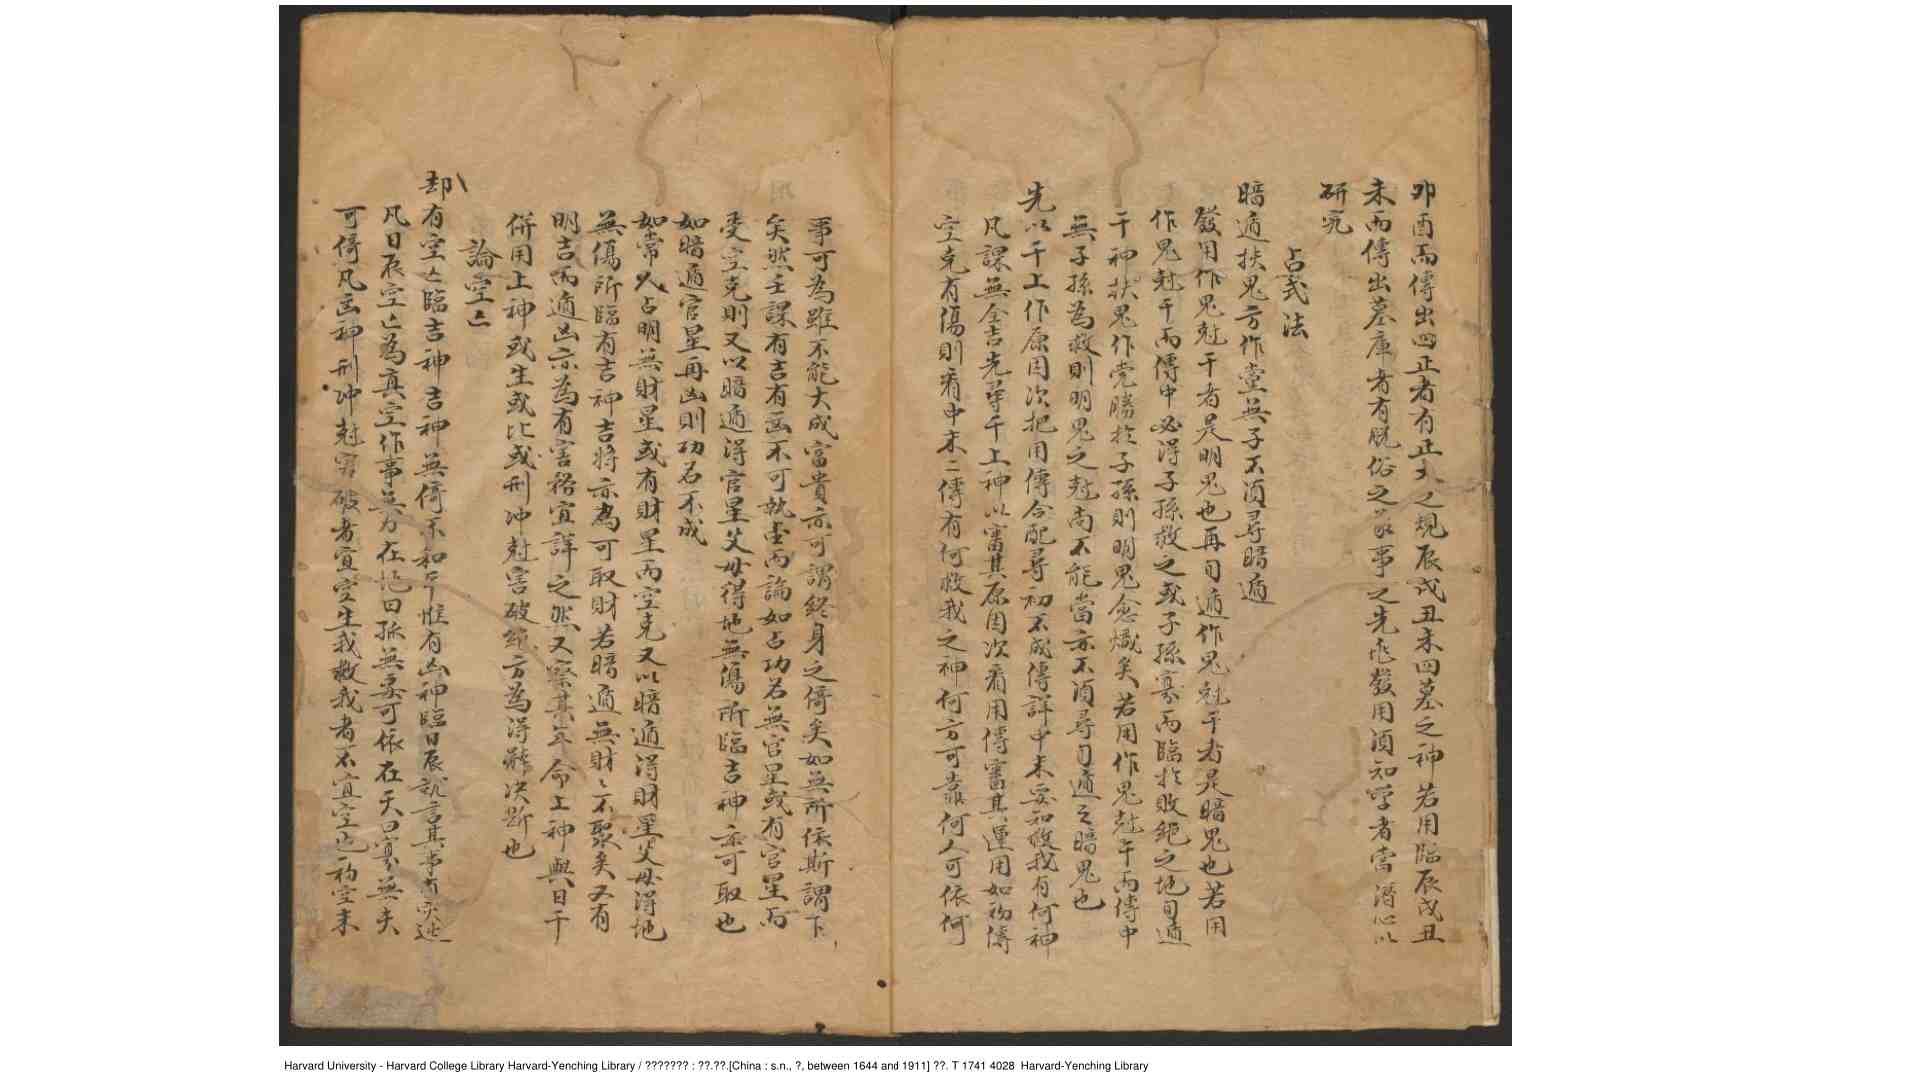 卯酉而傳出四正者有正大之規辰戌丑未四墓之神若用臨辰戌丑
未而傳出墓庫者有脫俗之家事之先兆發用須知學者當潛心以
研究
占式法
暗遁扶鬼方作黨無子不須尋暗遁
發用作鬼尅干者是明鬼也再旬遁作鬼尅干者是暗鬼也若用
作鬼尅干而傳中必得子孫救之或子孫寡而臨於敗絕之地旬遁
干神扶鬼作党勝於子孫則明鬼愈熾矣若用作鬼尅干而傳中
無子孫為救則明鬼之尅尚不能當亦不須尋旬遁之暗鬼也
先以干上作原因次把用傳合配尋初不成傳詳中末要知救我有何神
凡課無全吉先尋干上神以審其原因次看用傳審其運用如初傳
空克有傷則看中末二傳有何救我之神何方可靠何人可依何
事可為雖不能大成富貴亦可謂終身之倚矣如無所依斯謂下
矣然壬課有吉有凶不可執畫而論如占功名無官星或有官星而
受空克則又以暗遁得官星父母得地無傷所臨吉神亦可取也
如暗遁官星再凶則功名不成
如常人占明無財星或有財星而空克又以暗遁得財星父母得地
無傷所臨有吉神吉將亦為可取財若暗遁無財々不聚矣又有
明吉而遁凶亦為有害務宜詳之然又察其年命上神與日干
併用上神或生或比或刑冲尅害破絕方為得離决斷也
論空亡
却有空亡臨吉神吉神無倚不和平惟有凶神臨日辰說言其事有哭迯
凡日辰空亡為真空作事無力在地曰孤無要可依在天曰寡無夫
可倚凡凶神刑冲尅害破者宜空生我救我者不宜空也初空末